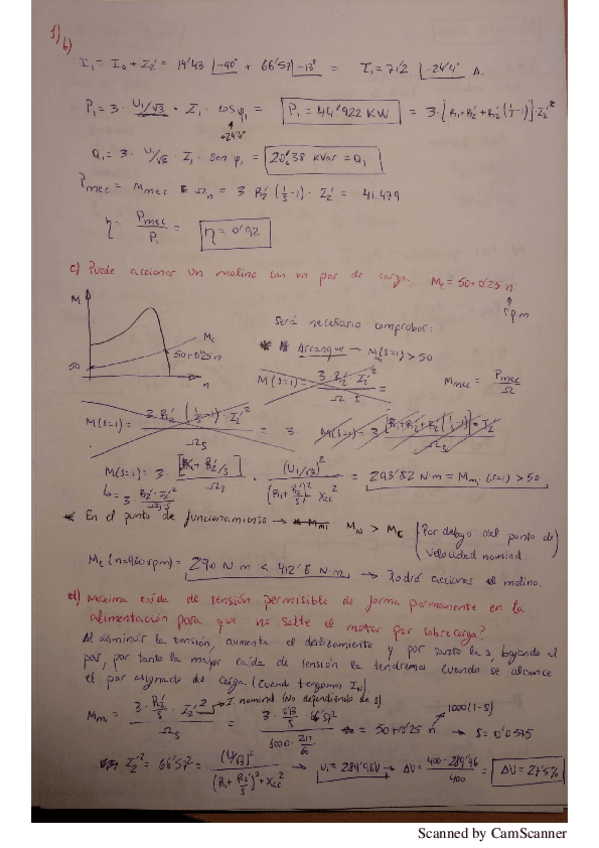 1) b)
I₁ = I₀ + I₂' = 14'43 |-90° + 66'57 |-13° = I₁ = 71'2 |-24'4° A.
P₁ = 3 · U₁/√3 · I₁ · cos φ₁ = P₁ = 44'922 KW = 3 · [R₁ + R₂' + R₂' (1/s - 1)] · I₂'²
+24'4°
Q₁ = 3 · U₁/√3 · I₁ · sen φ₁ = 20'38 KVar = Q₁
Pmec = Mmec · Ωn = 3 R₂' (1/s - 1) · I₂' = 41.479
η = Pmec/P₁ = η = 0'92
c) Puede accionar un molino con un par de carga. Mc = 50 + 0'25 n
rpm
M
Mc
50 + 0'25 n
50
n
Será necesario comprobar:
Arranque → M(s=1) > 50
M(s=1) = 3 · R₂' I₂'² / Ω s =
Mmec = Pmec/Ω
M(s=1) = 3 R₂' (1/s - 1) · I₂'² / Ωs = 3 ·
M(s=1) = 3 [R₁ + R₂' + R₂' (1/s - 1)] · I₂² / Ωs
M(s=1) = 3 · [R₂'/s] / Ωs · (U₁/√3)² / ((R₁ + R₂'/s)² + Xcc²) = 293'82 N m = Mmi (s=1) > 50
= 3 · R₂' · I₂'² / Ωs s
* En el punto de funcionamiento → MN > Mc (Por debajo del punto de velocidad nominal)
Mc (n=960 rpm) = 290 N m < 412'6 N·m → Podrá accionar el molino.
d) Máxima caída de tensión permisible de forma permanente en la
alimentación para que no salte el motor por sobrecarga?
Al disminuir la tensión, aumenta el deslizamiento y por tanto la s, bajando el
par, por tanto la mayor caída de tensión la tendremos cuando se alcance
el par asignado de carga (Cuando tengamos IN).
Mmi = 3 · R₂'/s · I₂'² / Ωs = 3 · 0'13/s · 66'57² / (1000 · 2π/60) = 50 + 0'25 n → s = 0'0575
I nominal (No dependiendo de s)
1000(1-s)
I₂'² = 66'57² = (U₁/√3)² / ((R₁ + R₂'/s)² + Xcc²) → U₁ = 289'96V → ΔU = (400 - 289'96)/400 = ΔU = 27'5%
Scanned by CamScanner